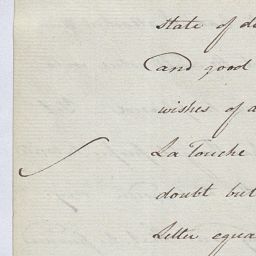 state of d
and good
wishes of a
La Touche
doubt but
Letter equa